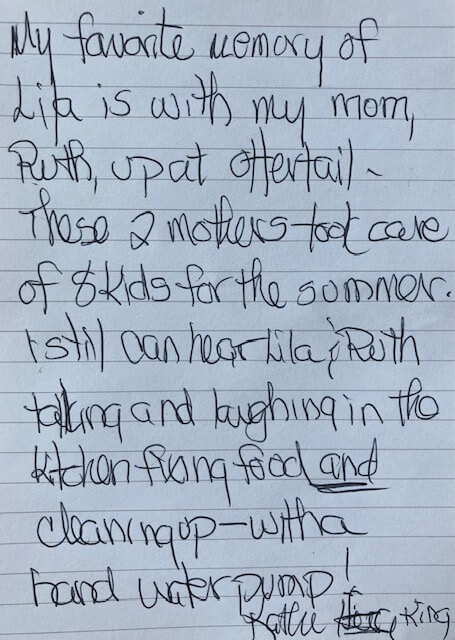 My favorite memory of
Lila is with my mom,
Ruth, up at Ottertail -
These 2 mothers took care
of 8 kids for the summer.
I still can hear Lila & Ruth
talking and laughing in the
kitchen fixing food and
cleaning up - with a
hand water pump!
Kathie King